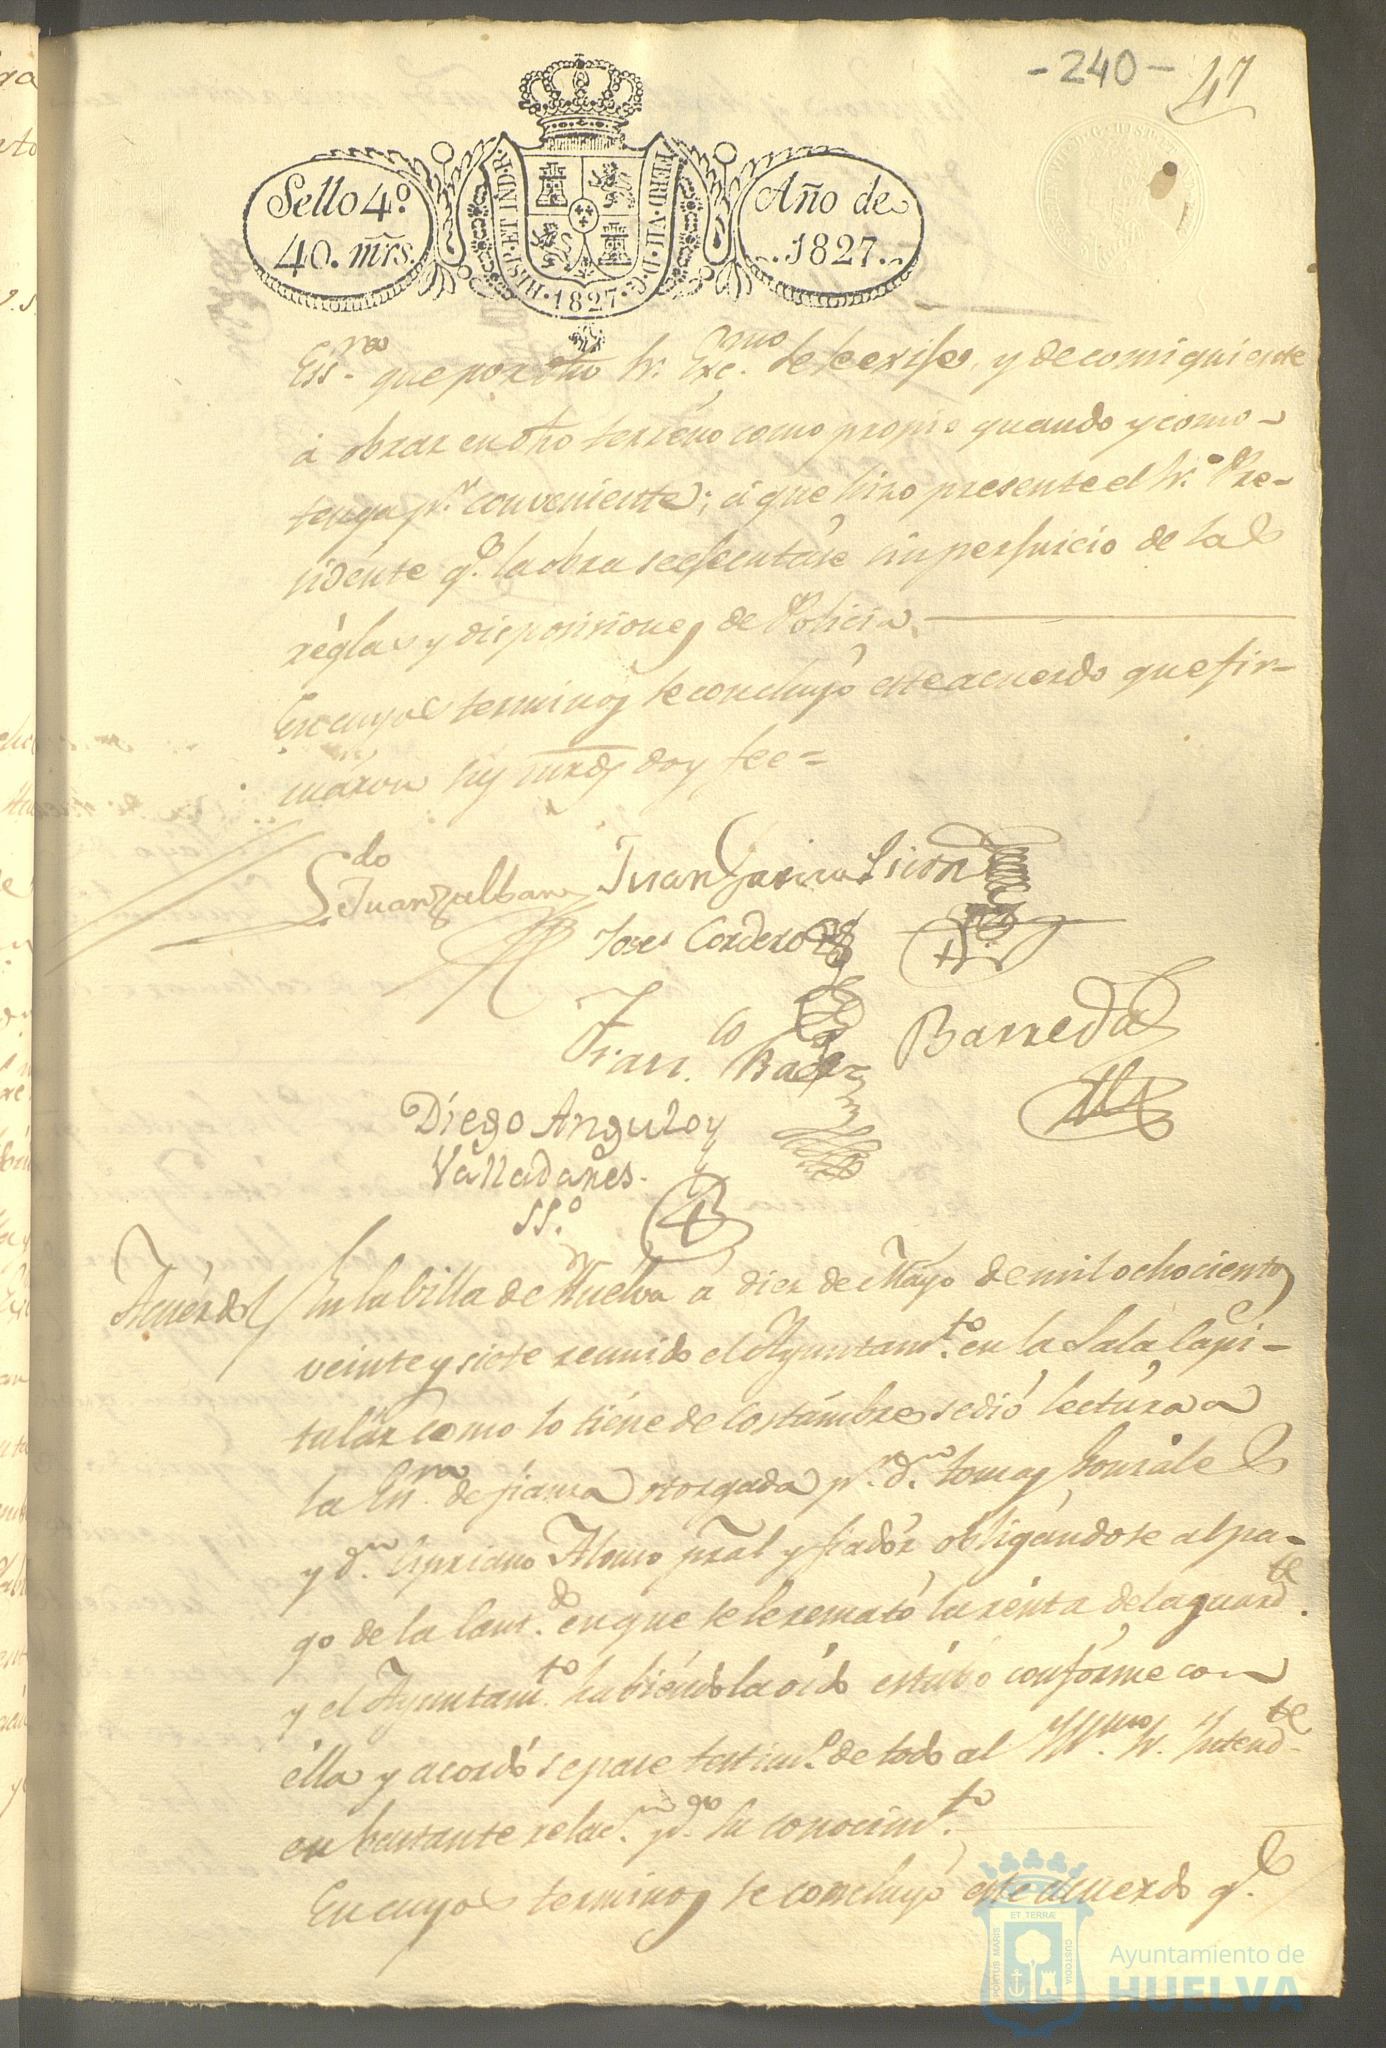 -240- 47
Sello 4º. 40. mrs.
HISP. ET IND. R. FERD. VII. D. G. 1827.
Año de 1827.
Essno. que por dho Sr. Excmo. y de consiguiente
á obrar en dho terreno como propio quando y como
tenga pr. conveniente; á que hizo presente el Sr. Pre-
sidente qe. la obra se efecutáse sin perjuicio de las
réglas y disposiciones de Policia.
En cuyos terminos se concluyó este acuerdo que fir-
máron sus mrds doy fee=
Ldo Juan Garcia
Jose Cordero
Franco Baez Barreda
Diego Angulo y
Valladares.
SSº.
Acuérdo / En la billa de Huelva á diez de Mayo de mil ochocientos
veinte y siete reunido el Ayuntamto. en la Sala Capi-
tulár como lo tiéne de costúmbre se dió lectúra a
la Essra. de fianza otorgada pr. dn. Tomas Gonzáles
y dn. Cipriano Alonso pral y fiadór obligándose al pa-
go de la cantd. en que se le remató la rénta del aguardte.
y el Ayuntamto. habiéndola oido estúbo confórme con
élla y acordó se pase testimo. de todo al Yllmo. Sr. Yntendte.
en bastante relacn. pa. su conocimto.
En cuyos terminos se concluyó este acuerdo qe.
PORTUS MARIS ET TERRÆ CUSTODIA
Ayuntamiento de
HUELVA